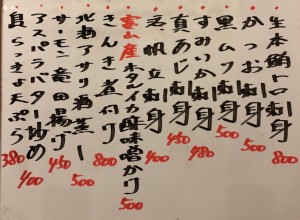 生本鮪トロ刺身 800
かつお刺身 500
黒ムツ刺身 500
すみいか刺身 480
真あじ刺身 450
帆立刺身 400
富山産ホタルイカ酢味噌かけ 500
きんき煮付け 800
北海アサリ酒蒸し 500
サーモン竜田揚げ 450
アスパラバター炒め 400
島らっきょ天ぷら 380